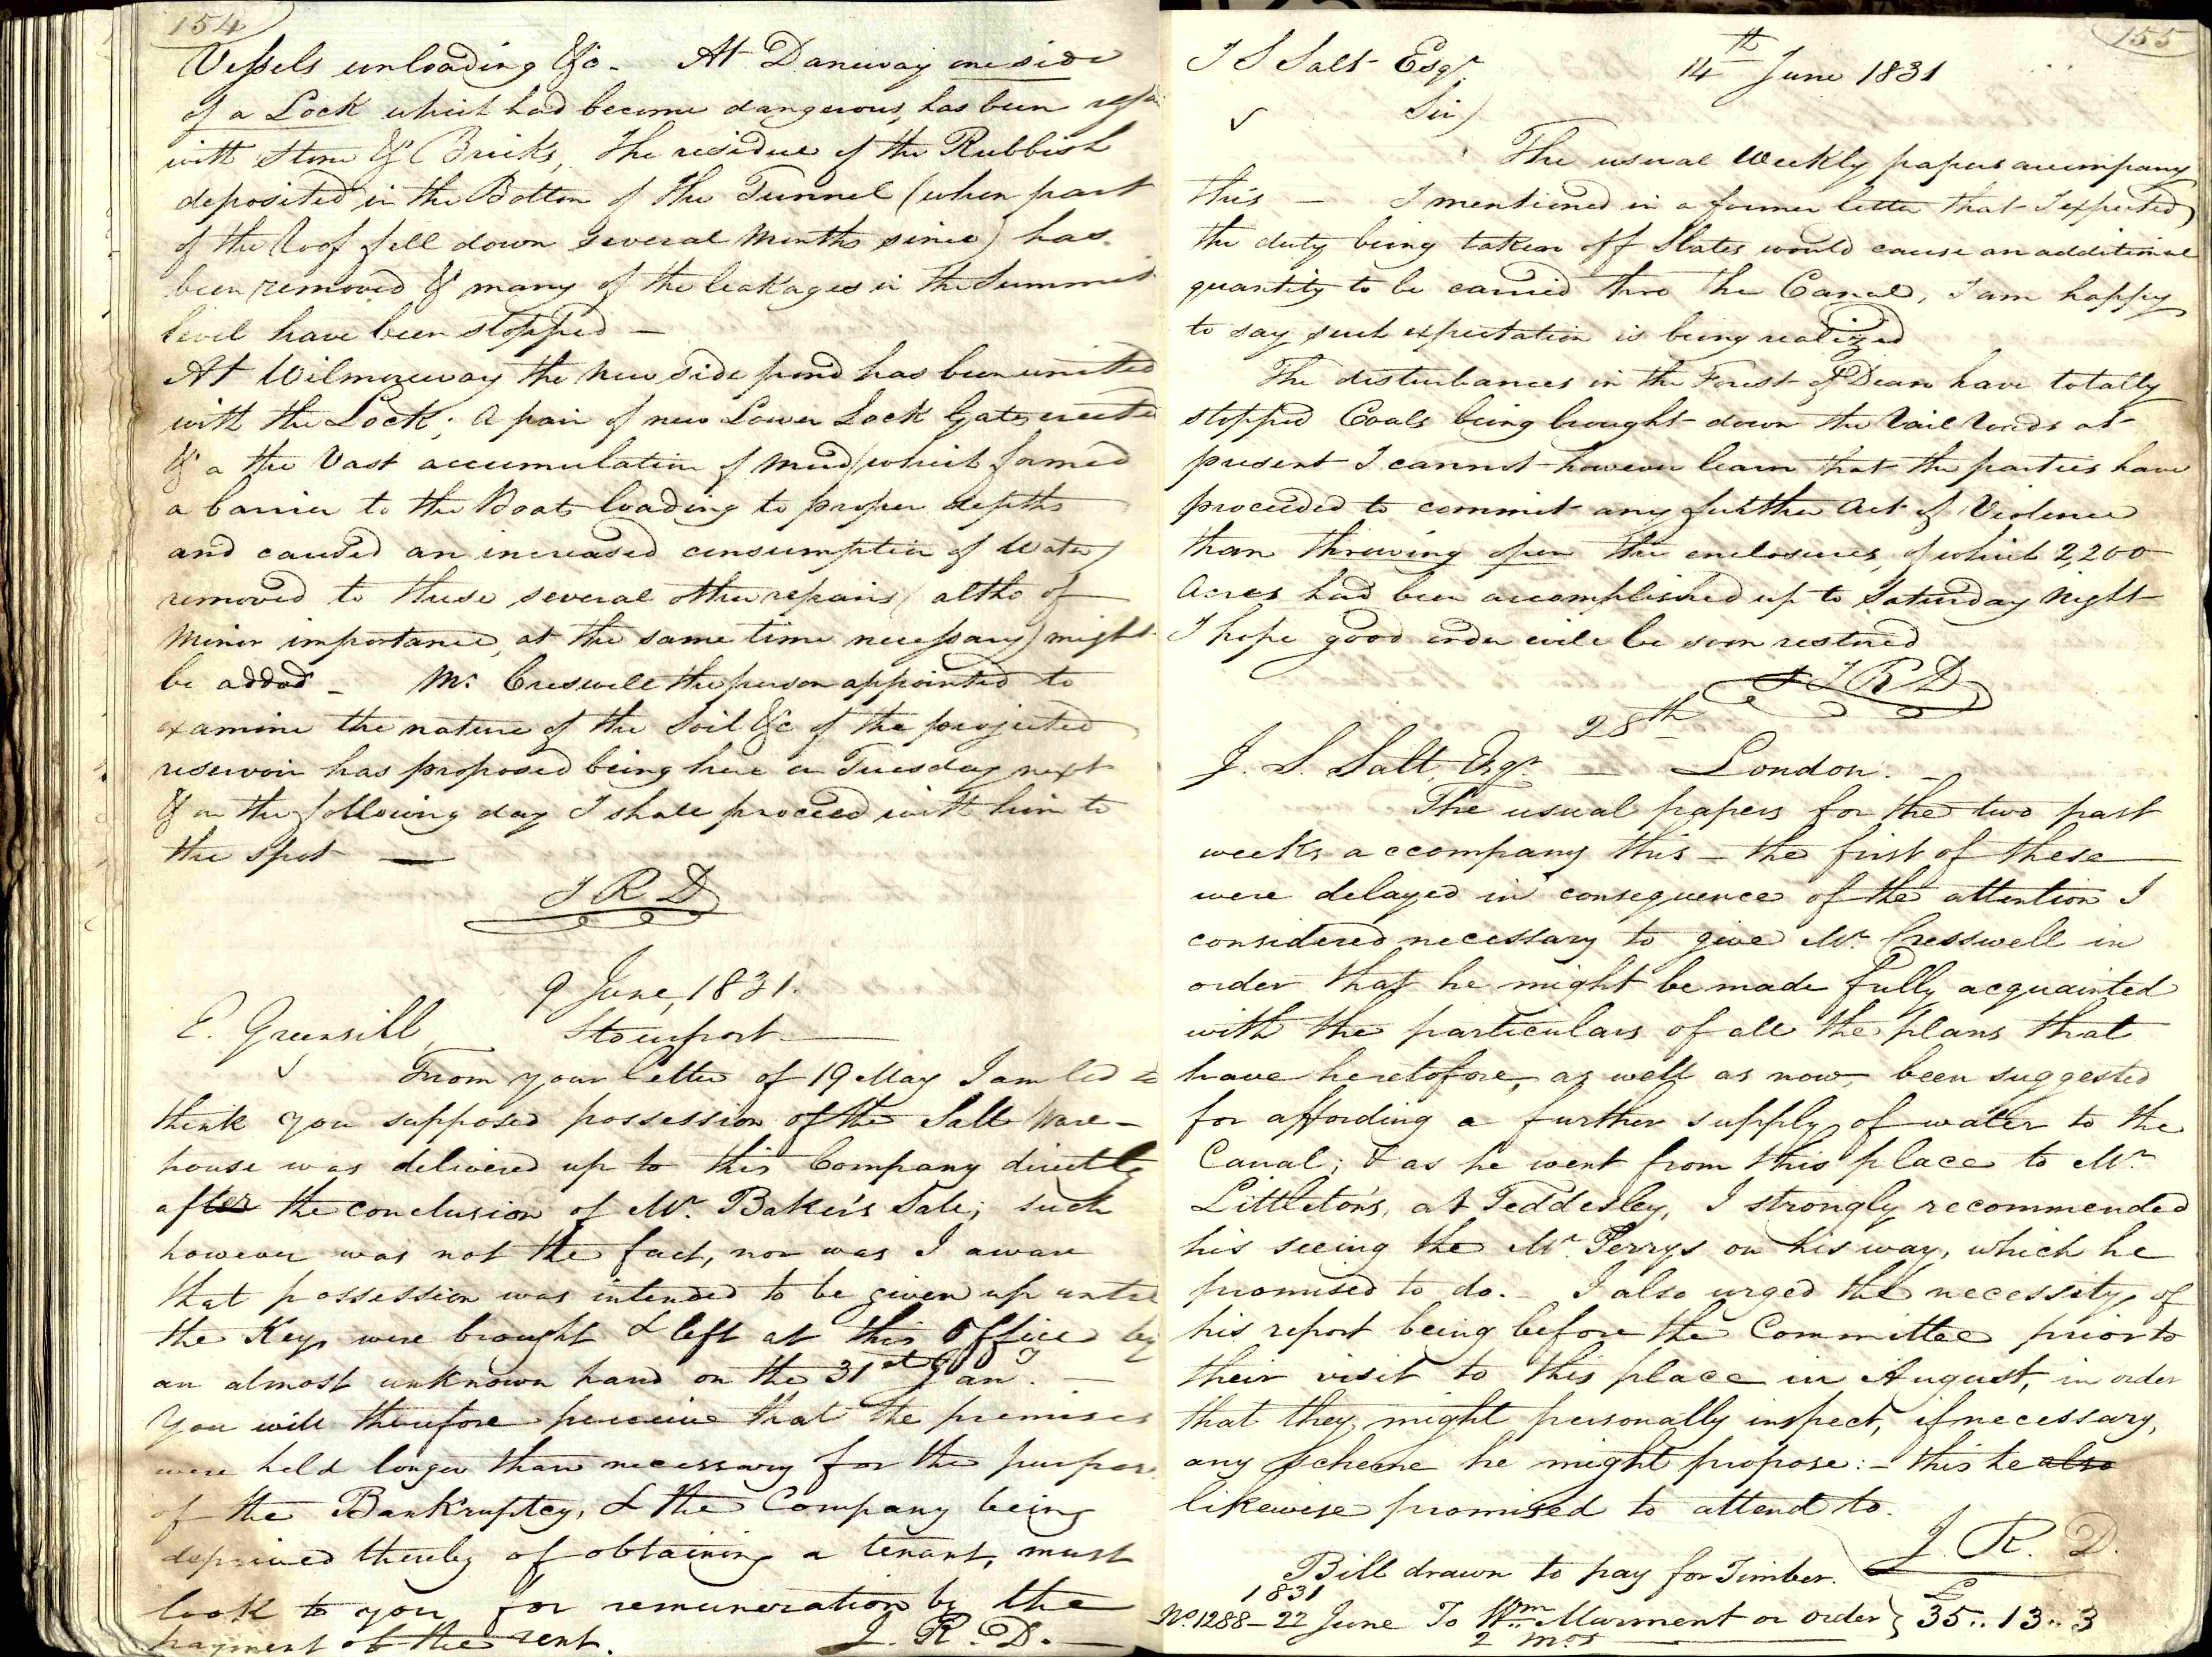 154
Vessels unloading &c - At Daneway one side
of a Lock which had become dangerous, has been
with Stone & Bricks, The residue of the Rubbish
deposited in the Bottom of the Tunnel (when part
of the Roof fell down several Months since) has
been removed & many of the leakages in the Summit
level have been stopped -
At Wilmoreway the New Side pond has been united
with the Lock; a pair of new Lower Lock Gates erected
& a the Vast accumulation of Mud (which formed
a barrier to the Boats loading to proper depths
and caused an increased consumption of Water)
removed to these several other repairs (altho of
Minor importance, at the same time necessary) might
be added - Mr. Creswell the person appointed to
examine the nature of the Soil &c of the projected
reservoir has proposed being here on Tuesday next
& on the following day I shall proceed with him to
the spot —
J R D
9 June, 1831.
E. Greensill, Stourport —
From your letter of 19 May I am led to
think you supposed possession of the Salt Ware-
house was delivered up to this Company directly
after the conclusion of Mr. Baker's Sale; such
however was not the fact, nor was I aware
that possession was intended to be given up until
the Keys were brought & left at this Office by
an almost unknown hand on the 31st Jany. —
You will therefore perceive that the premises
were held longer than necessary for the purpose
of the Bankruptcy, & the Company being
deprived thereby of obtaining a tenant, must
look to you for remuneration by the
payment of the rent. J. R. D. —
155
J S Salt Esqr. 14th June 1831
Sir)
The usual Weekly papers accompany
this — I mentioned in a former letter that I expected
the duty being taken off Slates would cause an additional
quantity to be carried thro the Canal, I am happy
to say such expectation is being realized
The disturbances in the Forest of Dean have totally
stopped Coals being brought down the Rail Roads at
present I cannot however learn that the parties have
proceeded to commit any further Act of Violence
than throwing open the enclosures, of which 2,200
Acres had been accomplished up to Saturday Night
I hope good order will be soon restored
J R D
28th
J. S. Salt, Esqr. — London. —
The usual papers for the two past
weeks accompany this — the first of these
were delayed in consequence of the attention I
considered necessary to give Mr. Cresswell in
order that he might be made fully acquainted
with the particulars of all the plans that
have heretofore, as well as now, been suggested
for affording a further supply of water to the
Canal; & as he went from this place to Mr.
Littleton's, at Teddesley, I strongly recommended
his seeing the Mr. Perrys on his way, which he
promised to do. — I also urged the necessity of
his report being before the Committee prior to
their visit to this place in August, in order
that they might personally inspect, if necessary,
any scheme he might propose: — this he also
likewise promised to attend to.
J. R. D.
Bill drawn to pay for Timber.
1831 £
No. 1288 — 22 June To Wm. Marment or order } 35 .. 13 .. 3
2 mos